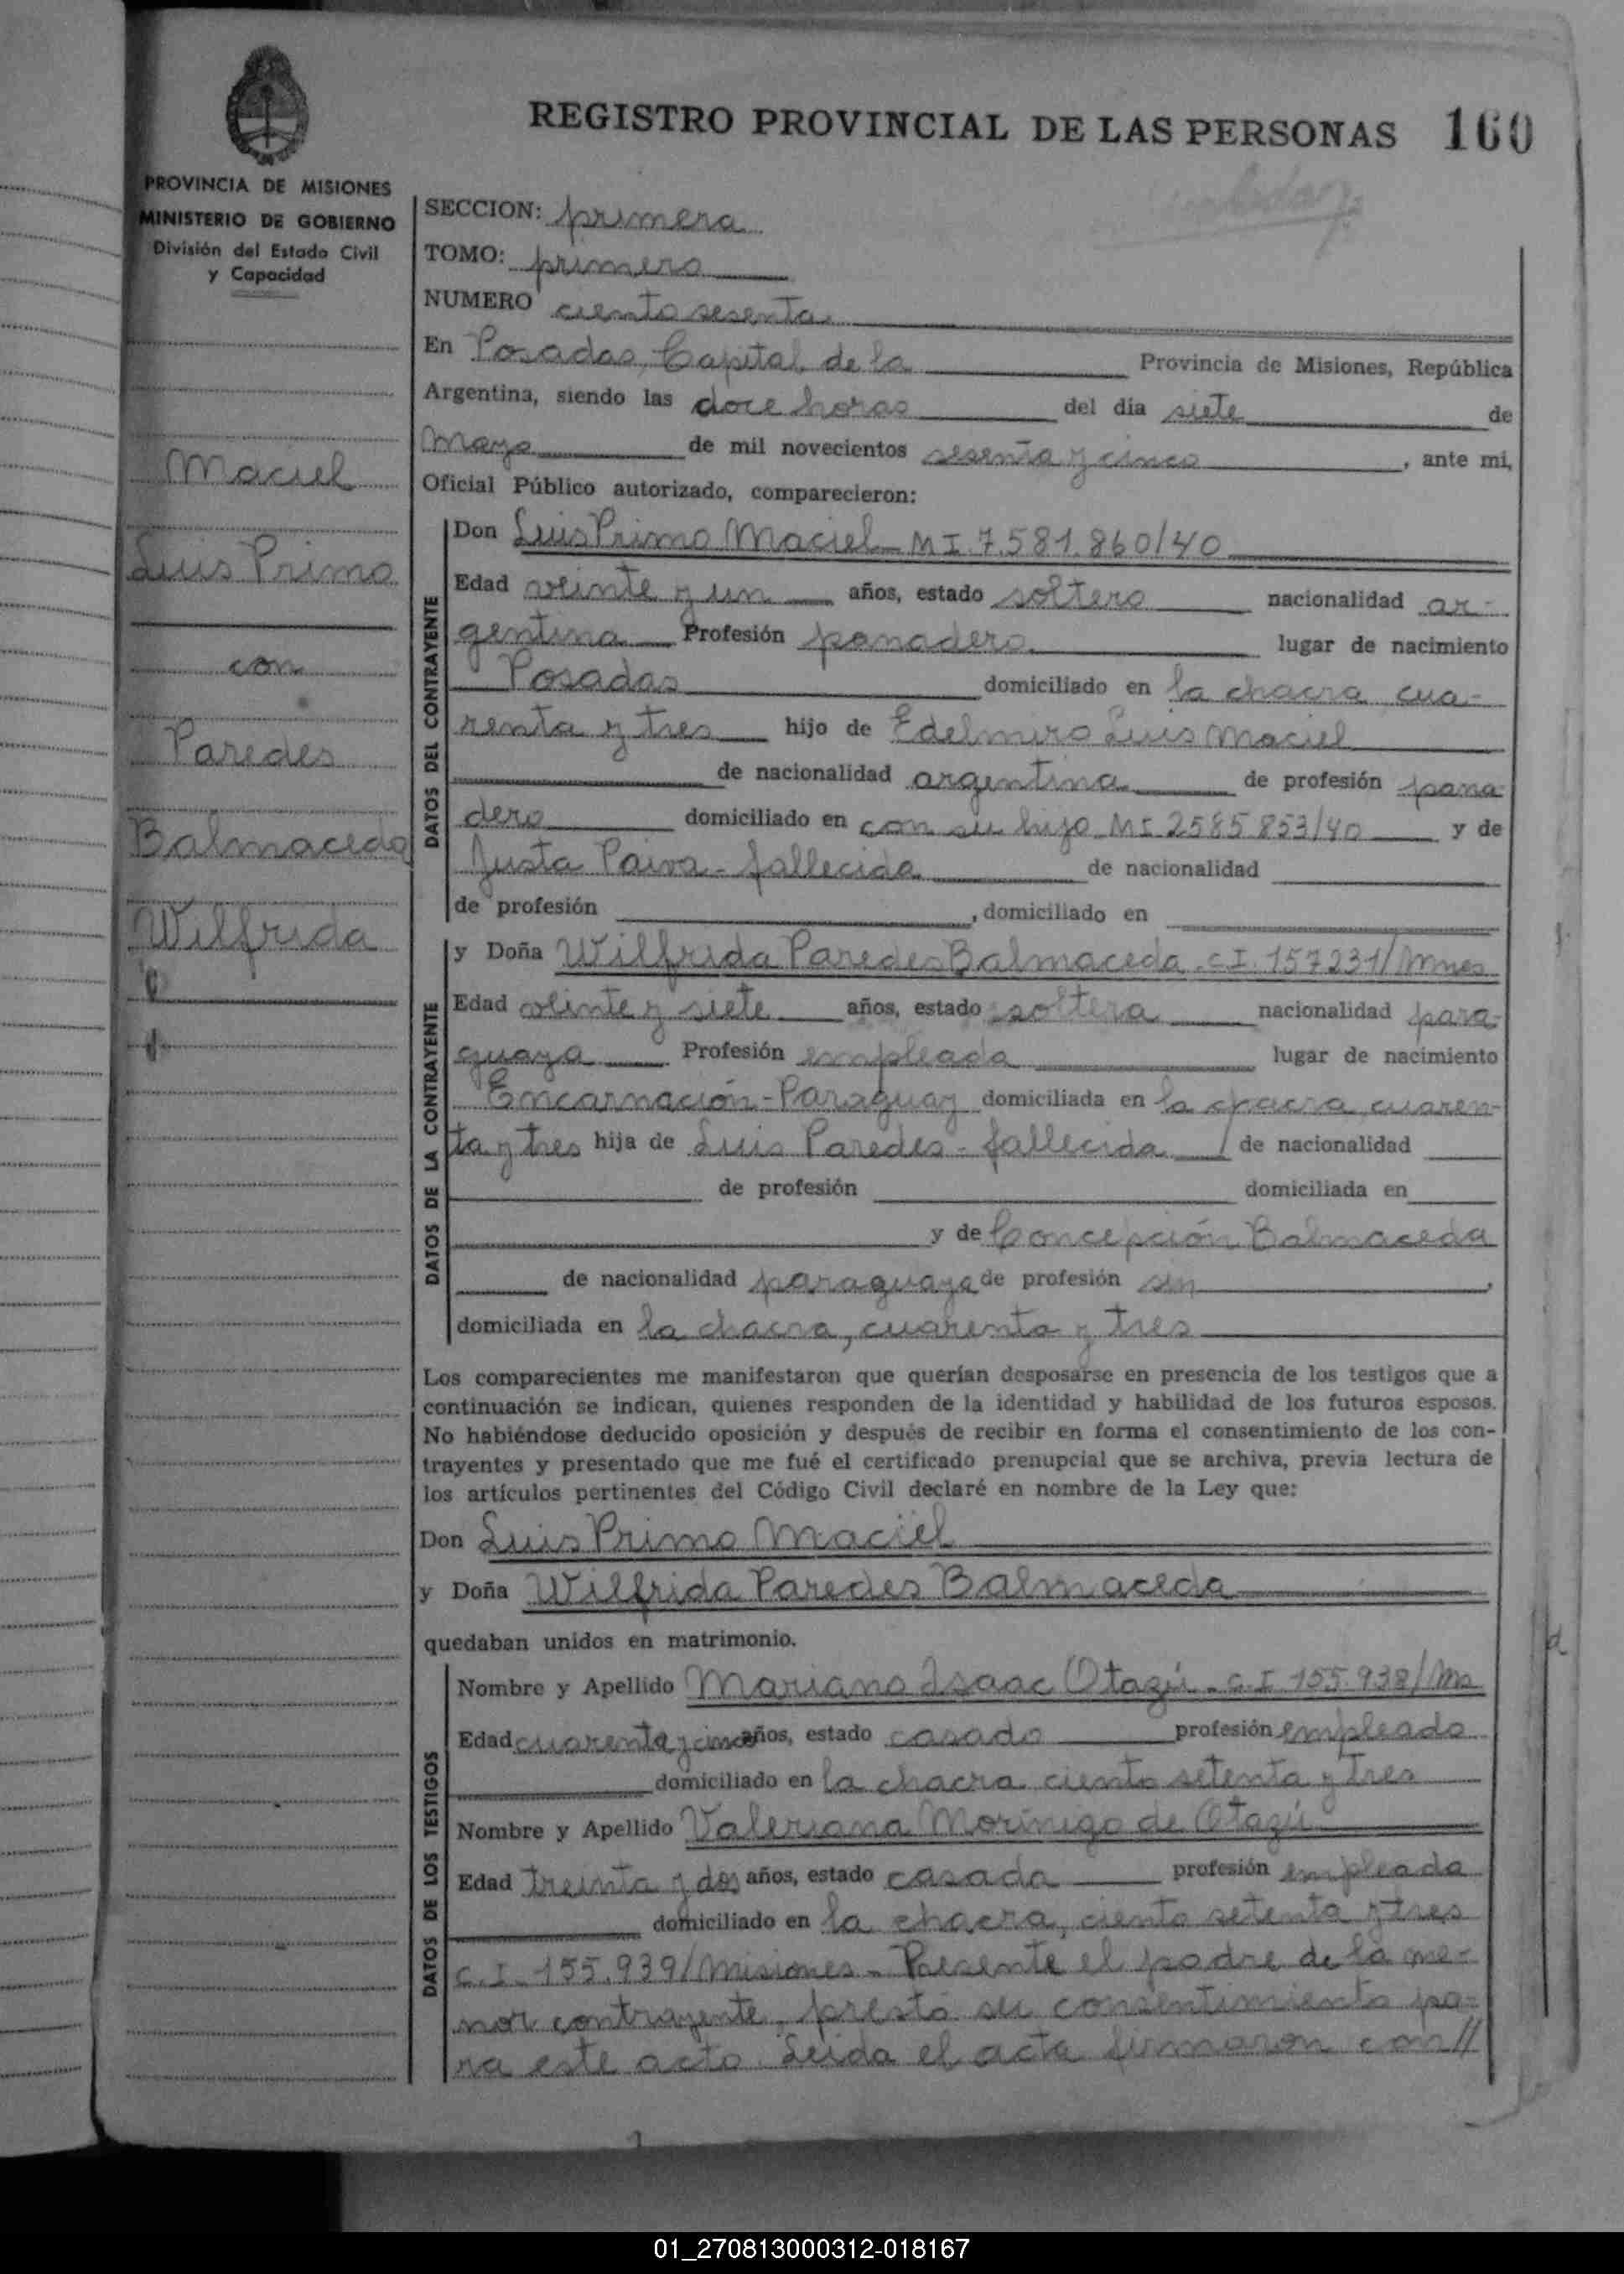 REGISTRO PROVINCIAL DE LAS PERSONAS 160
PROVINCIA DE MISIONES
MINISTERIO DE GOBIERNO
División del Estado Civil
y Capacidad
Maciel
Luis Primo
con
Paredes
Balmaceda
Wilfrida
SECCION: primera
TOMO: primero
NUMERO ciento sesenta
En Posadas, Capital de la Provincia de Misiones, República
Argentina, siendo las doce horas del día siete de
Mayo de mil novecientos sesenta y cinco, ante mi,
Oficial Público autorizado, comparecieron:
DATOS DEL CONTRAYENTE
Don Luis Primo Maciel - MI 7.581.860/40
Edad veinte y un años, estado soltero nacionalidad ar-
gentina Profesión panadero lugar de nacimiento
Posadas domiciliado en la chacra, cua-
renta y tres hijo de Edelmiro Luis Maciel
de nacionalidad argentina de profesión pana
dero domiciliado en con su hijo MI 2585853/40 y de
Justa Paiva - fallecida de nacionalidad
de profesión , domiciliado en
DATOS DE LA CONTRAYENTE
y Doña Wilfrida Paredes Balmaceda - C.I. 157231/Mnes
Edad veinte y siete años, estado soltera nacionalidad para-
guaya Profesión empleada lugar de nacimiento
Encarnación - Paraguay domiciliada en la chacra, cuaren-
ta y tres hija de Luis Paredes - fallecida / de nacionalidad
de profesión domiciliada en
y de Concepción Balmaceda
de nacionalidad paraguaya de profesión sin ,
domiciliada en la chacra, cuarenta y tres
Los comparecientes me manifestaron que querían desposarse en presencia de los testigos que a
continuación se indican, quienes responden de la identidad y habilidad de los futuros esposos.
No habiéndose deducido oposición y después de recibir en forma el consentimiento de los con-
trayentes y presentado que me fué el certificado prenupcial que se archiva, previa lectura de
los artículos pertinentes del Código Civil declaré en nombre de la Ley que:
Don Luis Primo Maciel
y Doña Wilfrida Paredes Balmaceda
quedaban unidos en matrimonio.
DATOS DE LOS TESTIGOS
Nombre y Apellido Mariano Isaac Otazú - C.I. 155.938/Ms
Edad cuarenta y cinco años, estado casado profesión empleado
domiciliado en la chacra ciento setenta y tres
Nombre y Apellido Valeriana Morinigo de Otazú
Edad treinta y dos años, estado casada profesión empleada
domiciliado en la chacra, ciento setenta y tres
C.I. 155.939/Misiones - Presente el padre de la me-
nor contrayente, prestó su consentimiento pa-
ra este acto. Leida el acta firmaron con//
01_270813000312-018167